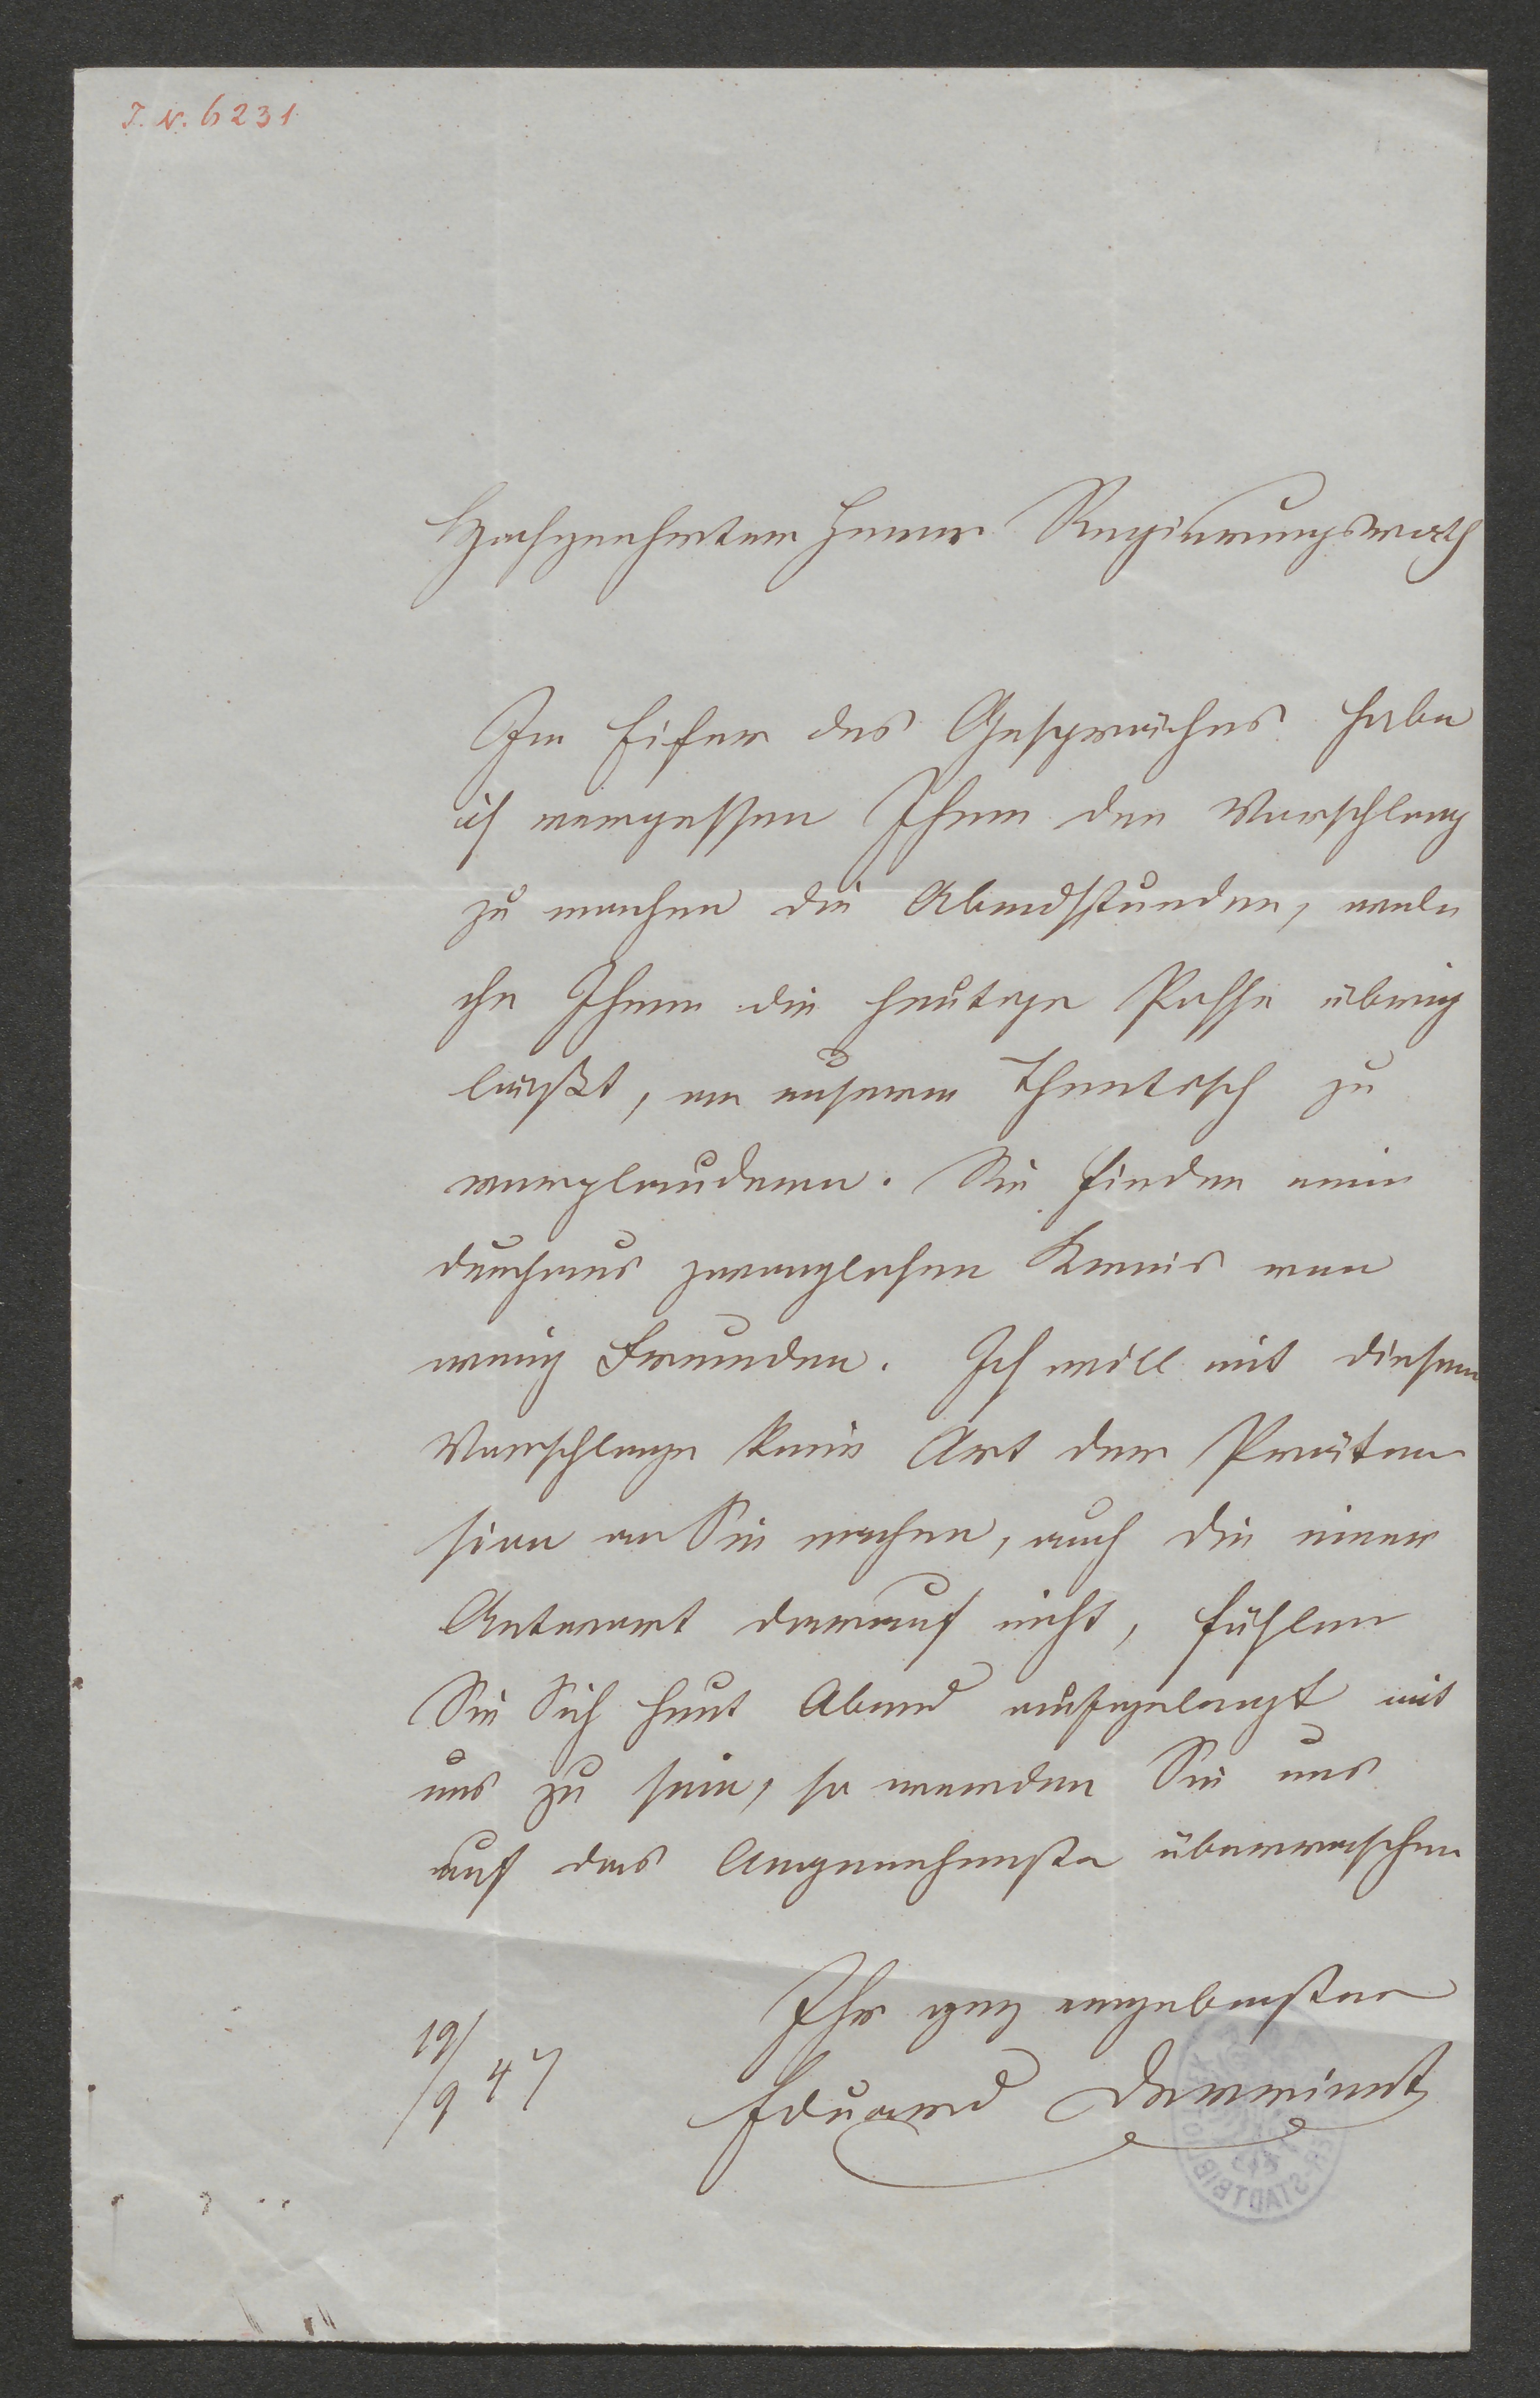 I. N. 6231
Hochgeehrter Herr Regierungsrath
Im Eifer des Gespräches habe
ich vergessen Ihnen den Vorschlag
zu machen die Abendstunden, wel-
che Ihnen die heutige Posse übrig
läßt, an unserem Theetisch zu
verplaudern. Sie finden einen
durchaus zwanglosen Kreis von
wenig Freunden. Ich will mit diesem
Vorschlage keine Art der Präten-
sion an Sie machen, auch die einer
Antwort darauf nicht, fühlen
Sie Sich heut Abend aufgelegt mit
uns zu sein, so werden Sie uns
auf das Angenehmste überraschen
Ihr ganz ergebenster
19/9 47
Eduard Devrient